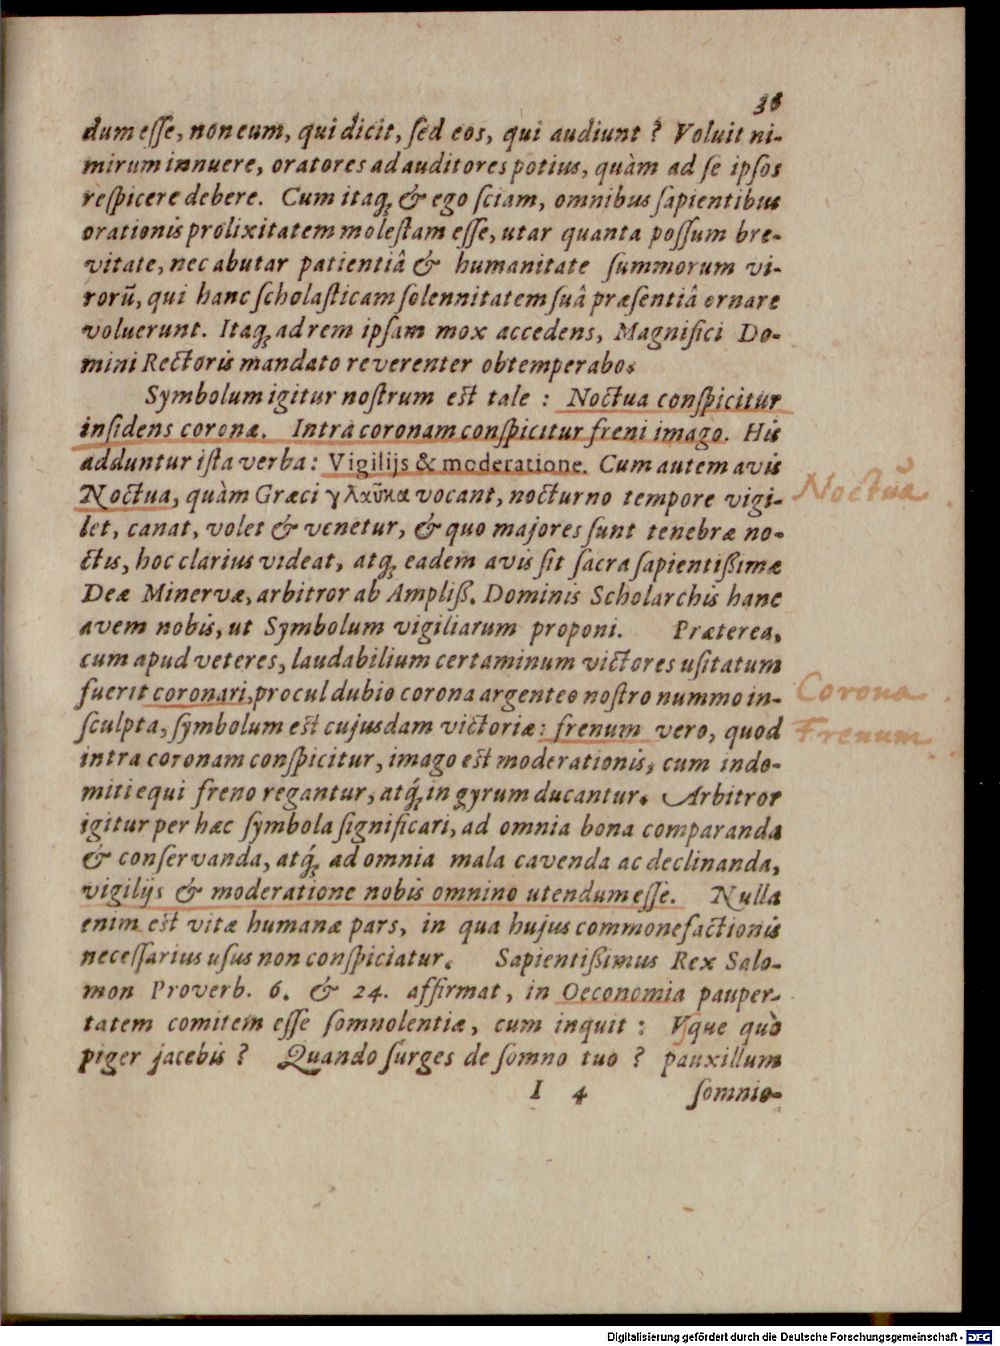 38
dum esse, non eum, qui dicit, sed eos, qui audiunt? Voluit ni-
mirum innuere, oratores ad auditores potius, quàm ad se ipsos
respicere debere. Cum itaq; & ego sciam, omnibus sapientibus
orationis prolixitatem molestam esse, utar quanta possum bre-
vitate, nec abutar patientiâ & humanitate summorum vi-
rorū, qui hanc scholasticam solennitatem suâ præsentiâ ornare
voluerunt. Itaq; ad rem ipsam mox accedens, Magnifici Do-
mini Rectoris mandato reverenter obtemperabo.
Symbolum igitur nostrum est tale: Noctua conspicitur
insidens coronæ. Intra coronam conspicitur freni imago. His
adduntur ista verba: Vigilijs & moderatione. Cum autem avis
Noctua, quàm Græci γλαῦκα vocant, nocturno tempore vigi-
let, canat, volet & venetur, & quo majores sunt tenebræ no-
ctis, hoc clarius videat, atq; eadem avis sit sacra sapientißimæ
Deæ Minervæ, arbitror ab Ampliß. Dominis Scholarchis hanc
avem nobis, ut Symbolum vigiliarum proponi. Præterea,
cum apud veteres, laudabilium certaminum victores usitatum
fuerit coronari, procul dubio corona argenteo nostro nummo in-
sculpta, symbolum est cujusdam victoriæ: frenum vero, quod
intra coronam conspicitur, imago est moderationis, cum indo-
miti equi freno regantur, atq́; in gyrum ducantur. Arbitror
igitur per hæc symbola significari, ad omnia bona comparanda
& conservanda, atq́; ad omnia mala cavenda ac declinanda,
vigilijs & moderatione nobis omnino utendum esse. Nulla
enim est vitæ humanæ pars, in qua hujus commonefactionis
necessarius usus non conspiciatur. Sapientißimus Rex Salo-
mon Proverb. 6. & 24. affirmat, in Oeconomia pauper-
tatem comitem esse somnolentiæ, cum inquit: Vsque quò
piger jacebis? Quando surges de somno tuo? pauxillum
I 4 somnio-
Noctua
Corona
Frenum
Digitalisierung gefördert durch die Deutsche Forschungsgemeinschaft - DFG